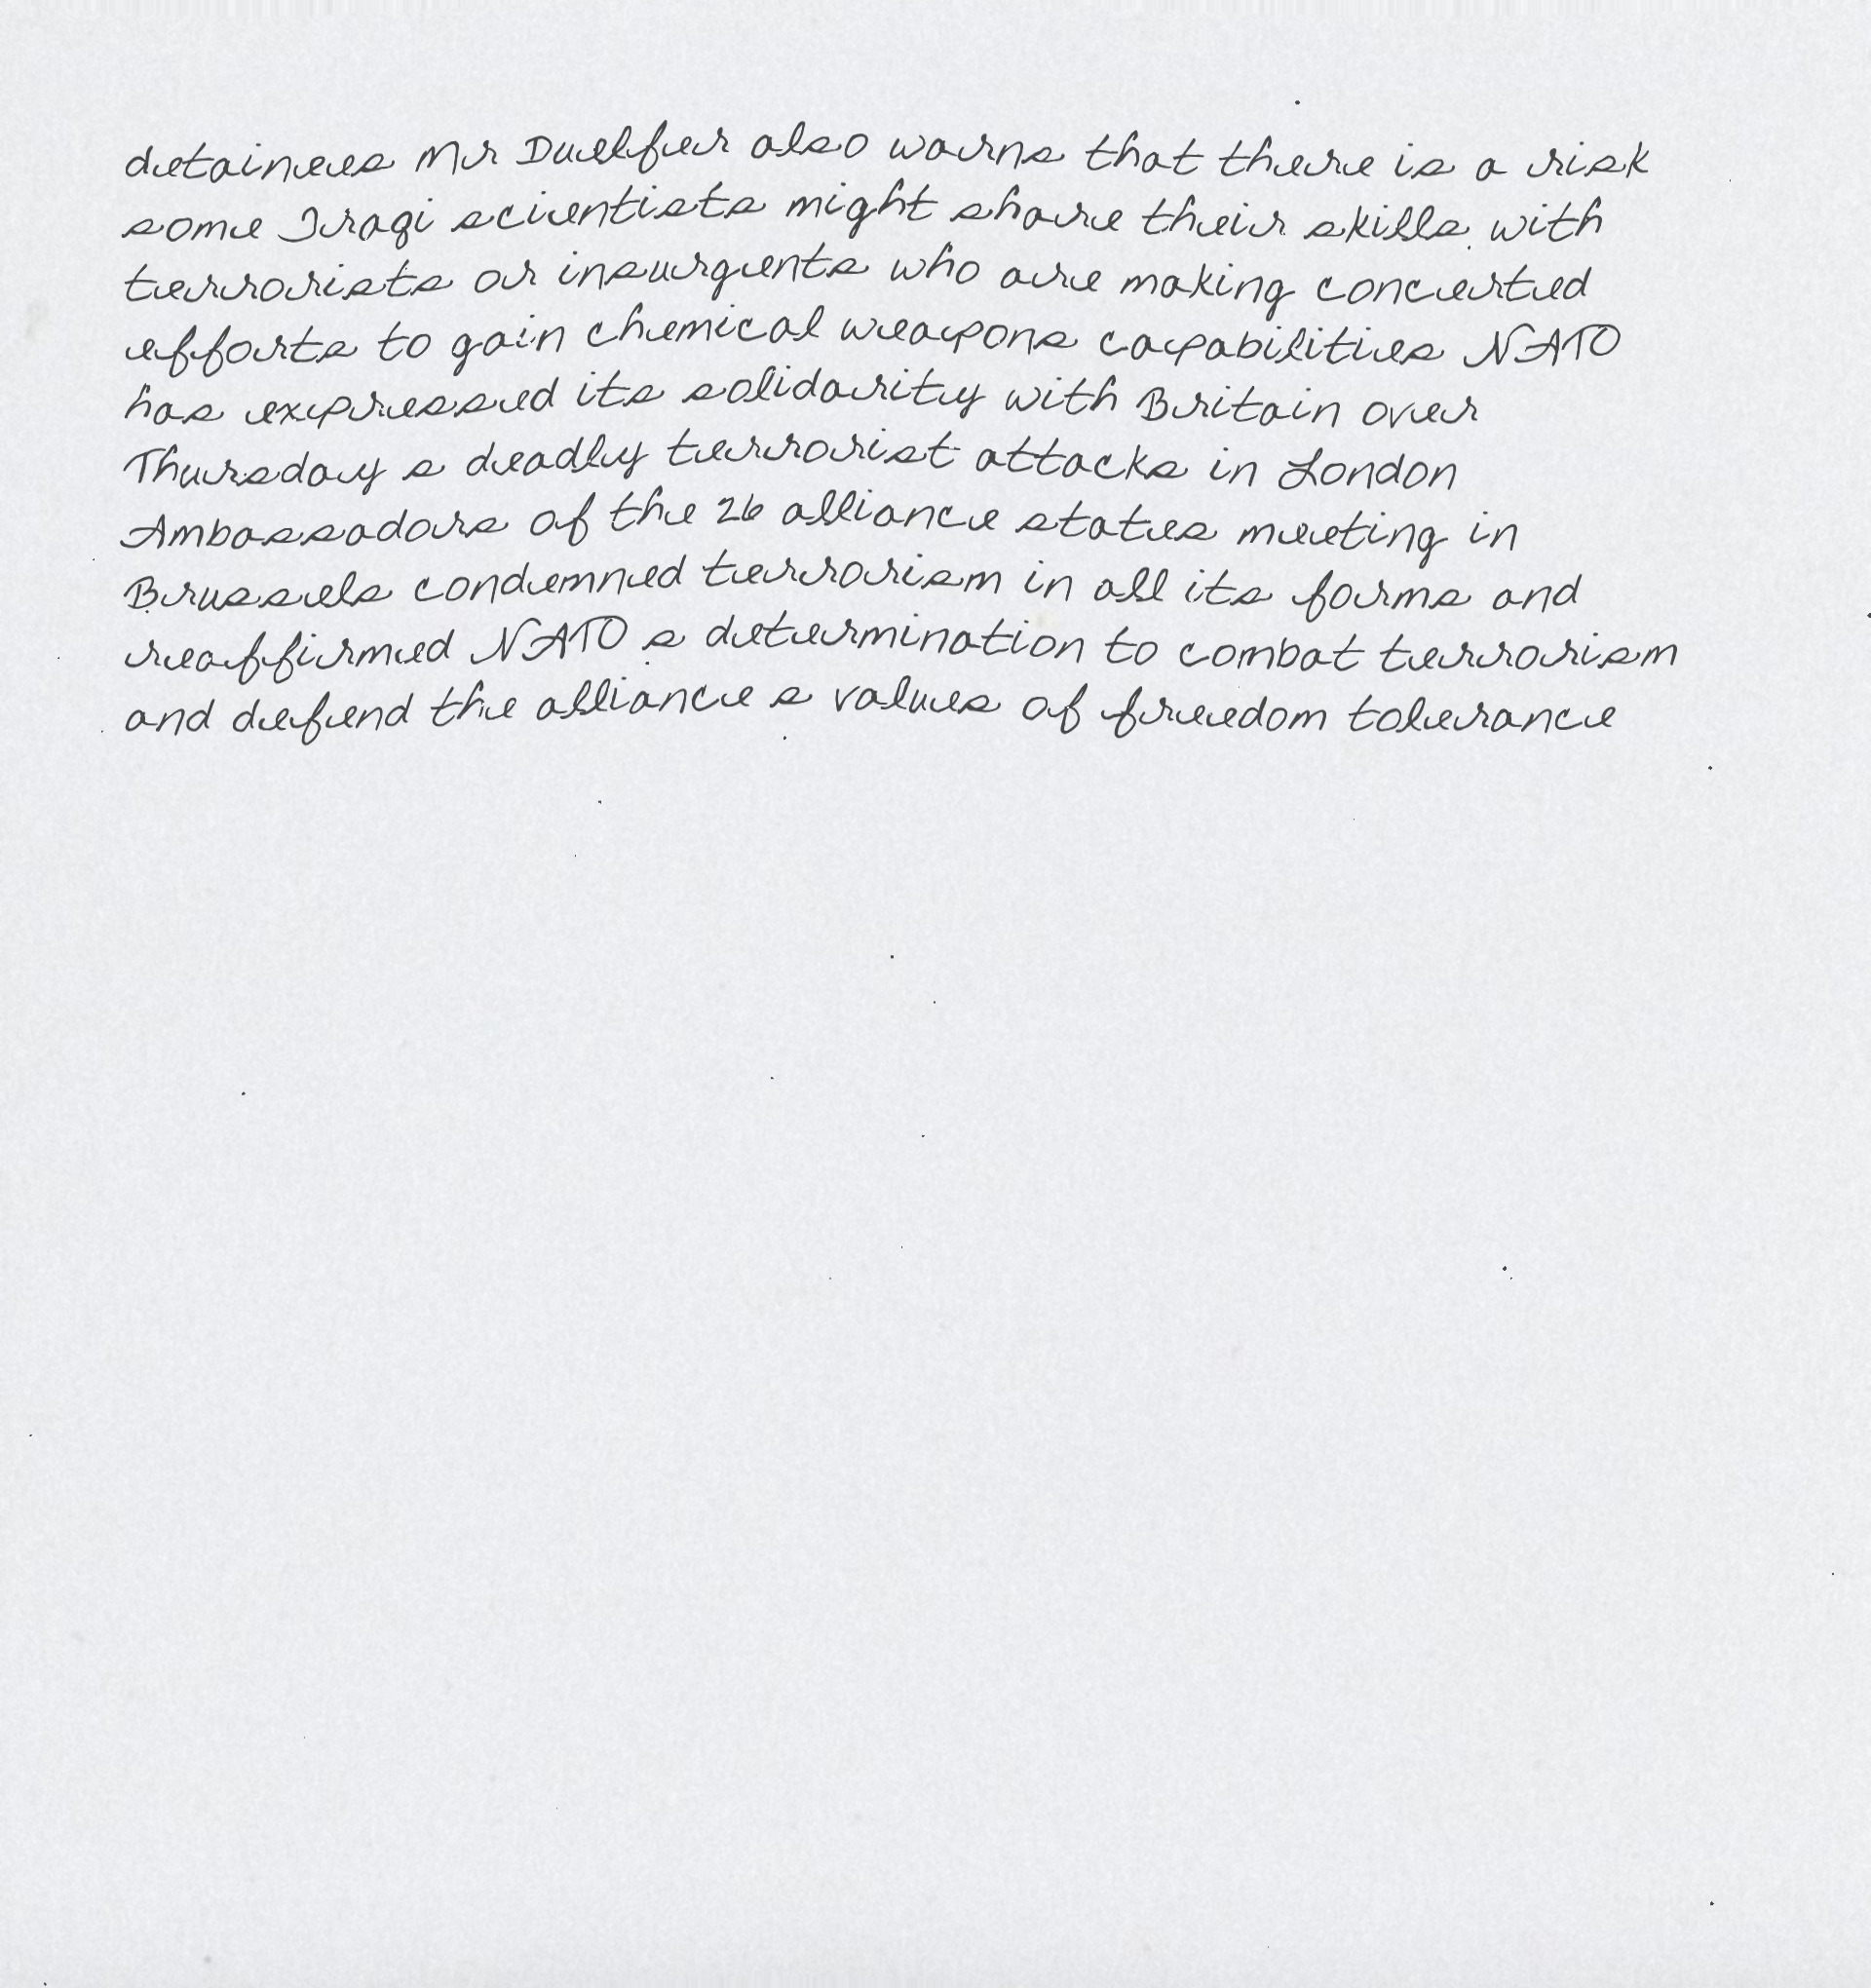 detainees Mr Duelfer also warns that there is a risk
some Iraqi scientists might share their skills with
terrorists or insurgents who are making concerted
efforts to gain chemical weapons capabilities NATO
has expressed its solidarity with Britain over
Thursday s deadly terrorist attacks in London
Ambassadors of the 26 alliance states meeting in
Brussels condemned terrorism in all its forms and
reaffirmed NATO s determination to combat terrorism
and defend the alliance s values of freedom tolerance